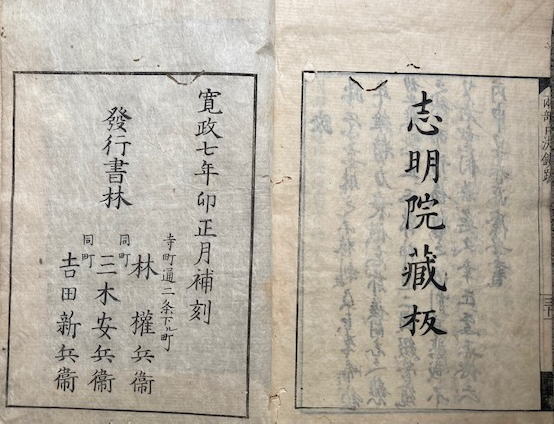 志明院藏板
寛政七年卯正月補刻
發行書林
寺町通二条下ル町
林權兵衞
同町
三木安兵衞
同町
吉田新兵衞